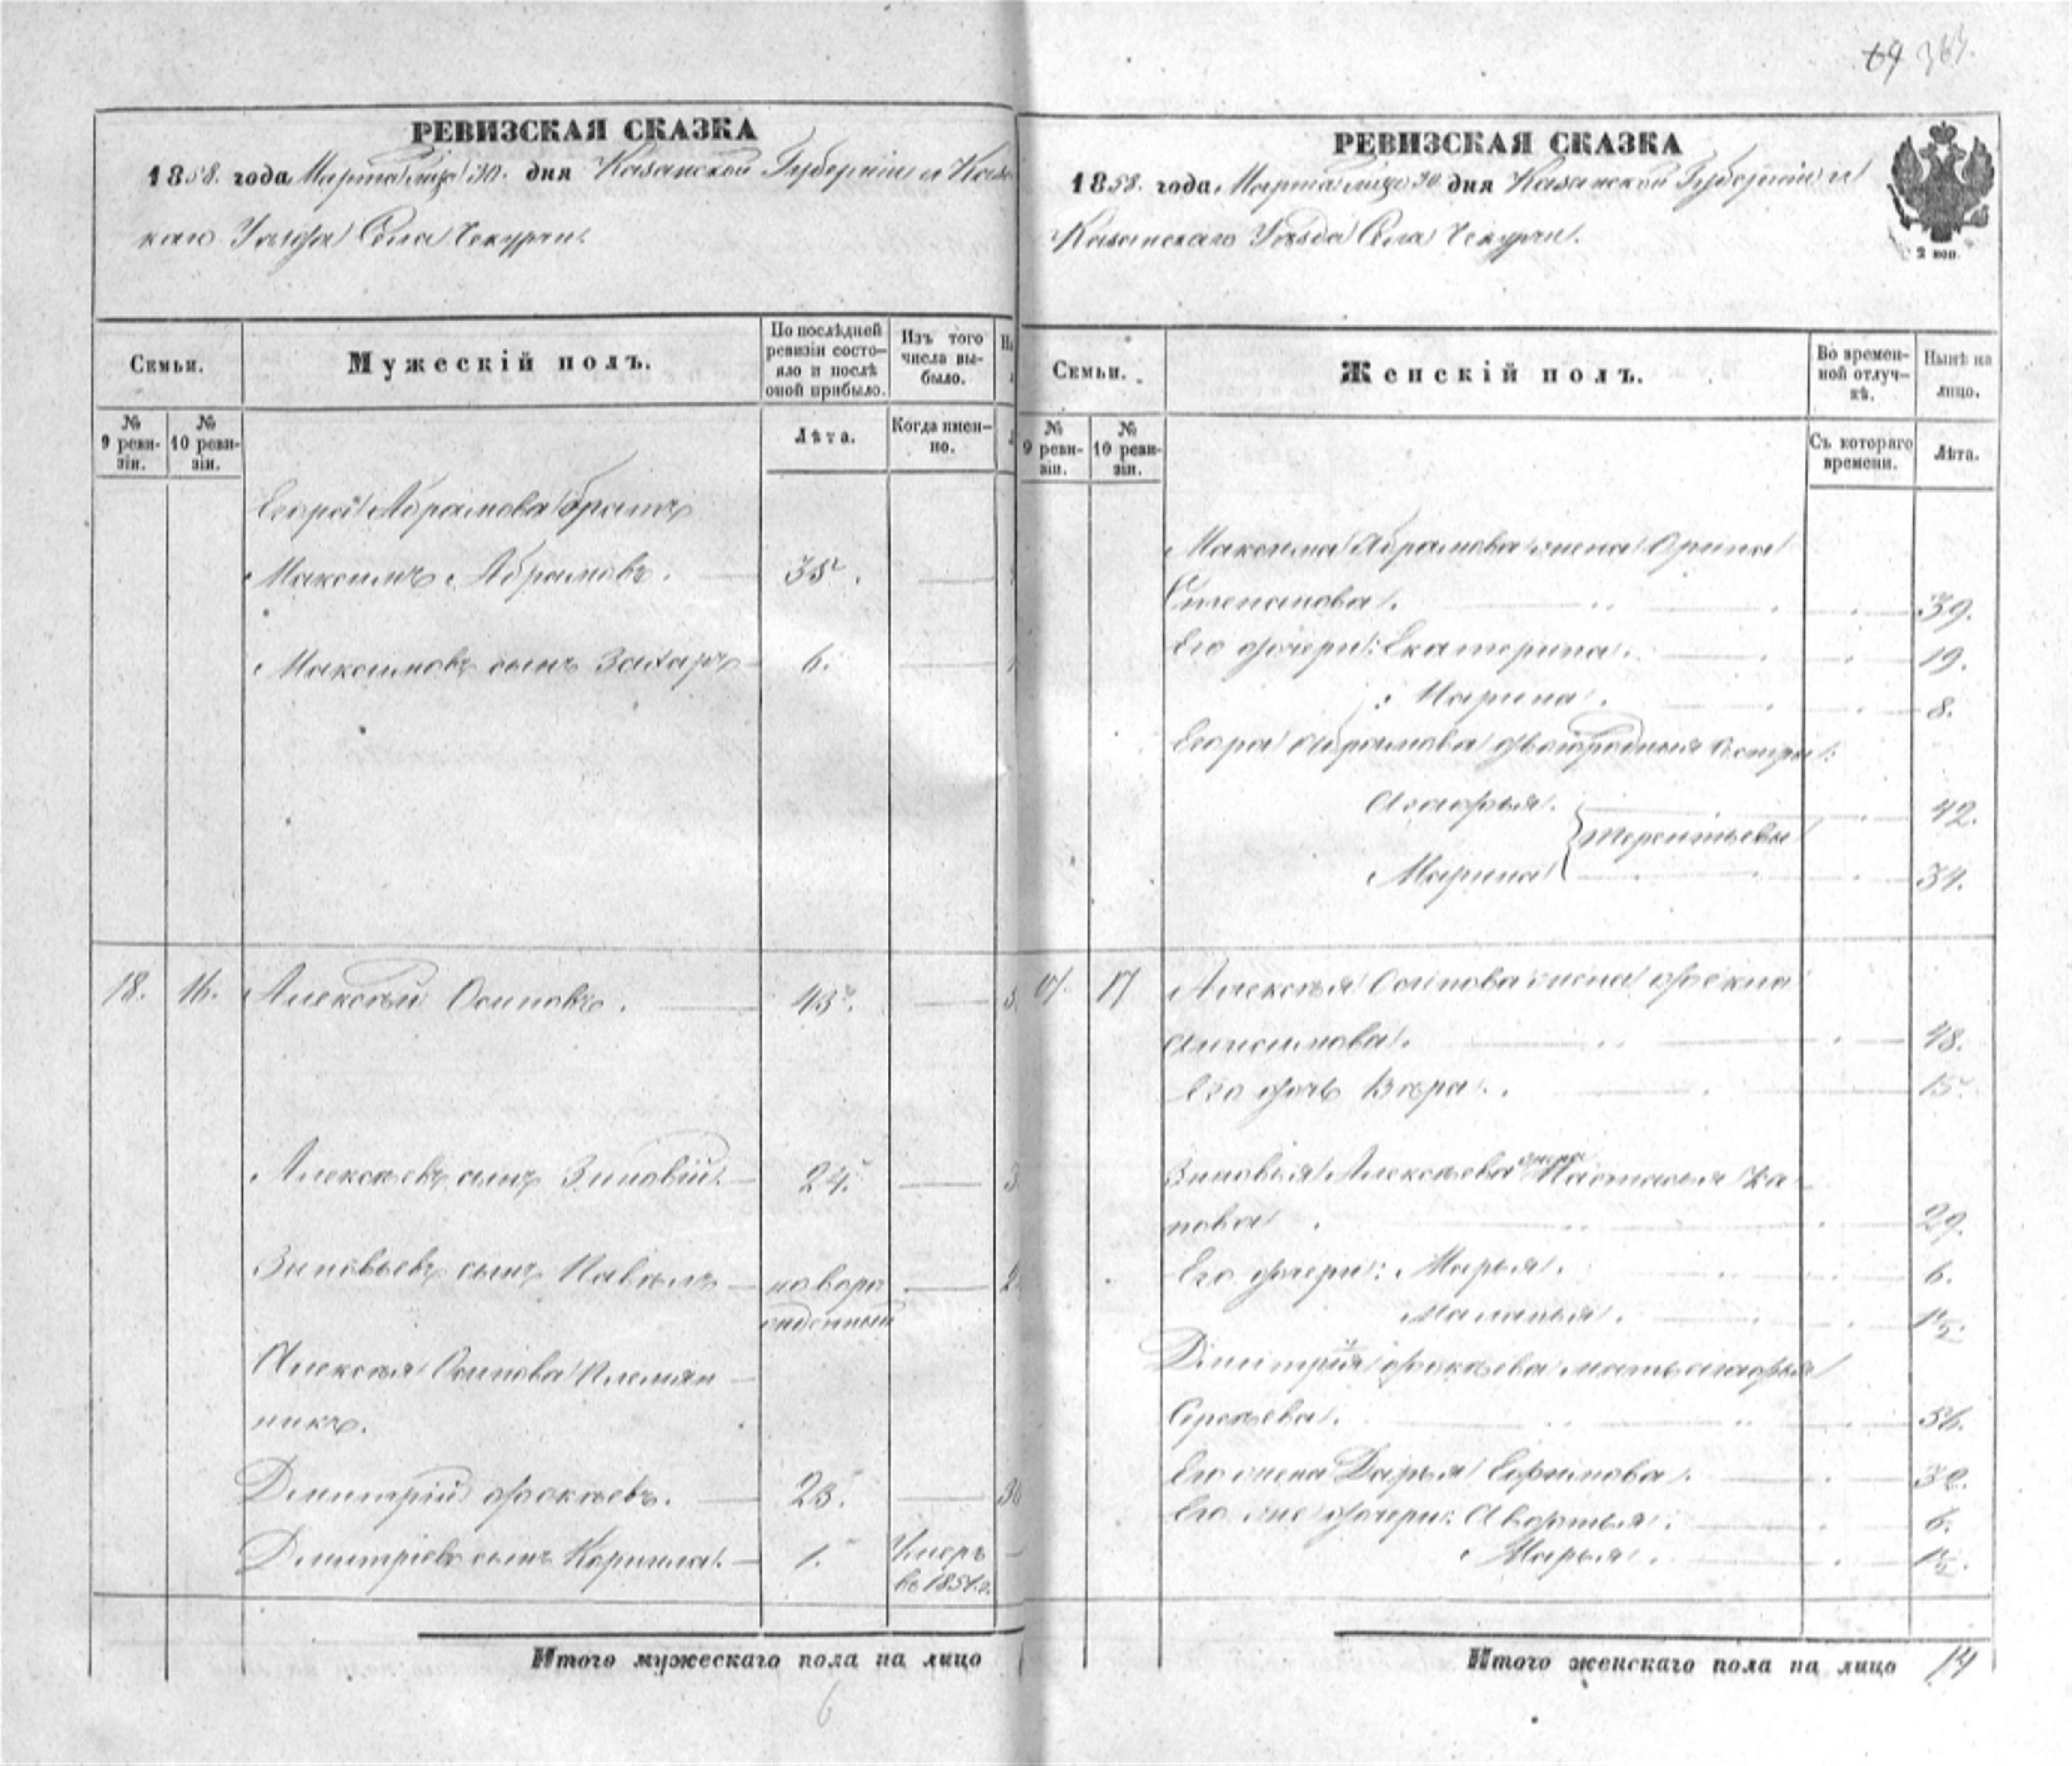 69 364.
РЕВИЗСКАЯ СКАЗКА
1858. года Марта мца 30. дня Казанской Губерніи и Каза
каго Уѣзда Села Чекурчи.
Семьи.
Мужескій полъ.
По послѣдней ревизіи состояло и послѣ оной прибыло.
Изъ того числа выбыло.
№ 9 ревизіи.
№ 10 ревизіи.
Лѣта.
Когда именно.
Егора Абрамова братъ
Максимъ Абрамовъ. 35.
Максимовъ сынъ Захаръ 6.
18. 16. Алексѣй Осиповъ. 43.
Алексѣевъ сынъ Зиновій. 24.
Зиновьевъ сынъ Павелъ новоро
жденный
Алексѣя Осипова племян
никъ.
Дмитрій Фокѣевъ. 23.
Дмитріевъ сынъ Корнила. 1. Умеръ
въ 1851 г.
Итого мужескаго пола на лицо
6
РЕВИЗСКАЯ СКАЗКА
1858. года Марта мца 30 дня Казанской Губерніи и
Казанскаго Уѣзда Села Чекурчи.
2 коп.
Семьи.
Женскій полъ.
Во временной отлучкѣ.
Нынѣ на лицо.
№ 9 ревизіи.
№ 10 ревизіи.
Съ котораго времени.
Лѣта.
Максима Абрамова жена Орина
Степанова. 39.
Его дочери: Екатерина. 19.
Марина. 8.
Егора Абрамова двоюродныя сестры:
Агафья. 42.
Терентьевы
Марина 34.
17 Алексѣя Осипова жена Фекла
Анисимова. 48.
Его дочь Вѣра. 15
Зиновья Алексѣева жена Настасья
нова 29.
Его дочери: Марья. 6.
Маланья. 1/2.
Дмитрія Фокѣева мать Агафья
Сергѣева. 56.
Его жена Дарья Ефимова. 32.
Его же дочери: Авдотья. 6.
Марья. 1/2.
Итого женскаго пола на лицо 14